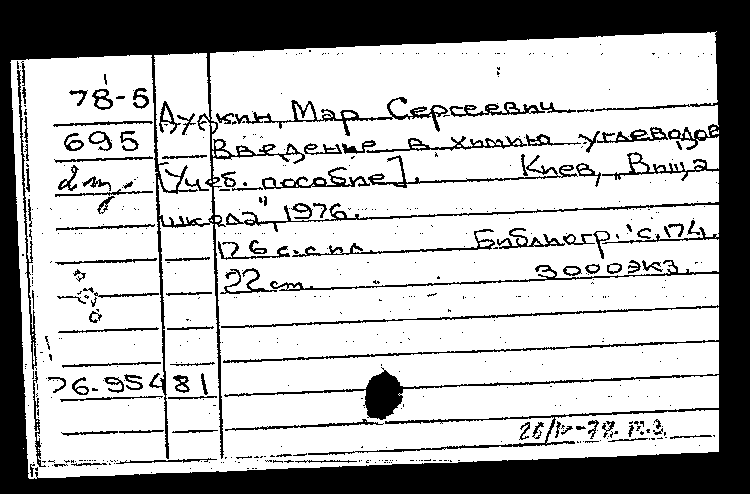 78-5
Дудкин, Мар Сергеевич
695
Введение в химию углеводов
2 экз.
[Учеб. пособие]. Киев, „Вища
школа", 1976.
176 с. с ил. Библиогр.: с. 174.
22 см. 3000 экз.
76.95481
26/IV-78. п.з.